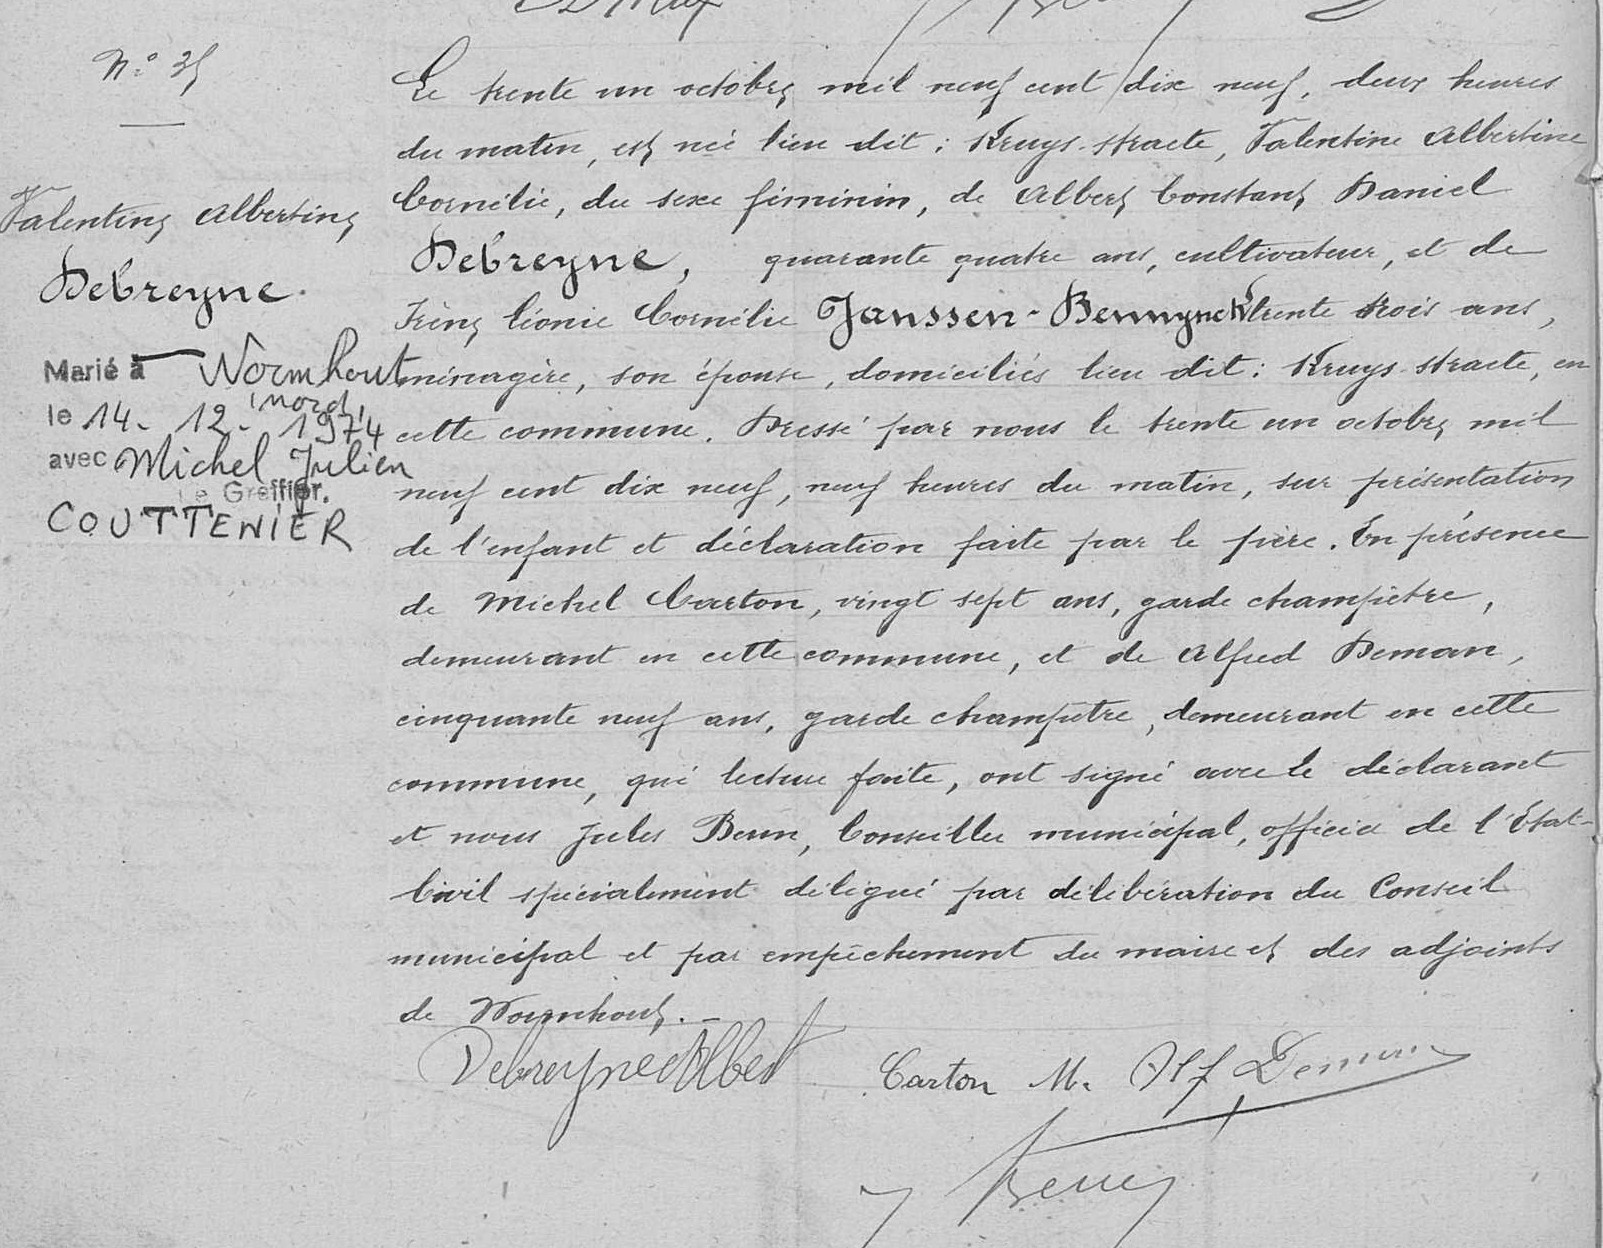 N° 35
Valentine Albertine
Debreyne.
Marié à Wormhout
(nord)
le 14. 12. 1974
avec Michel Julien
Le Greffier.
COUTTENIER
Le trente un octobre mil neuf cent dix neuf, deux heures
du matin, est née lieu dit : Kruys-straete, Valentine Albertine
Cornélie, du sexe féminin, de Albert Constant Daniel
Debreyne, quarante quatre ans, cultivateur, et de
Irène Léonie Cornélie Janssen-Bennynck trente trois ans,
ménagère, son épouse, domiciliés lieu dit : Kruys-straete, en
cette commune. Dressé par nous le trente un octobre mil
neuf cent dix neuf, neuf heures du matin, sur présentation
de l'enfant et déclaration faite par le père. En présence
de Michel Carton, vingt sept ans, garde champêtre,
demeurant en cette commune, et de Alfred Deman,
cinquante neuf ans, garde champêtre, demeurant en cette
commune, qui lecture faite, ont signé avec le déclarant
et nous Jules Beun, Conseiller municipal, officier de l'Etat-
Civil spécialement délégué par délibération du Conseil
municipal et par empêchement du maire et des adjoints
de Wormhout. _
Debreyne Albert Carton M. Alf Deman